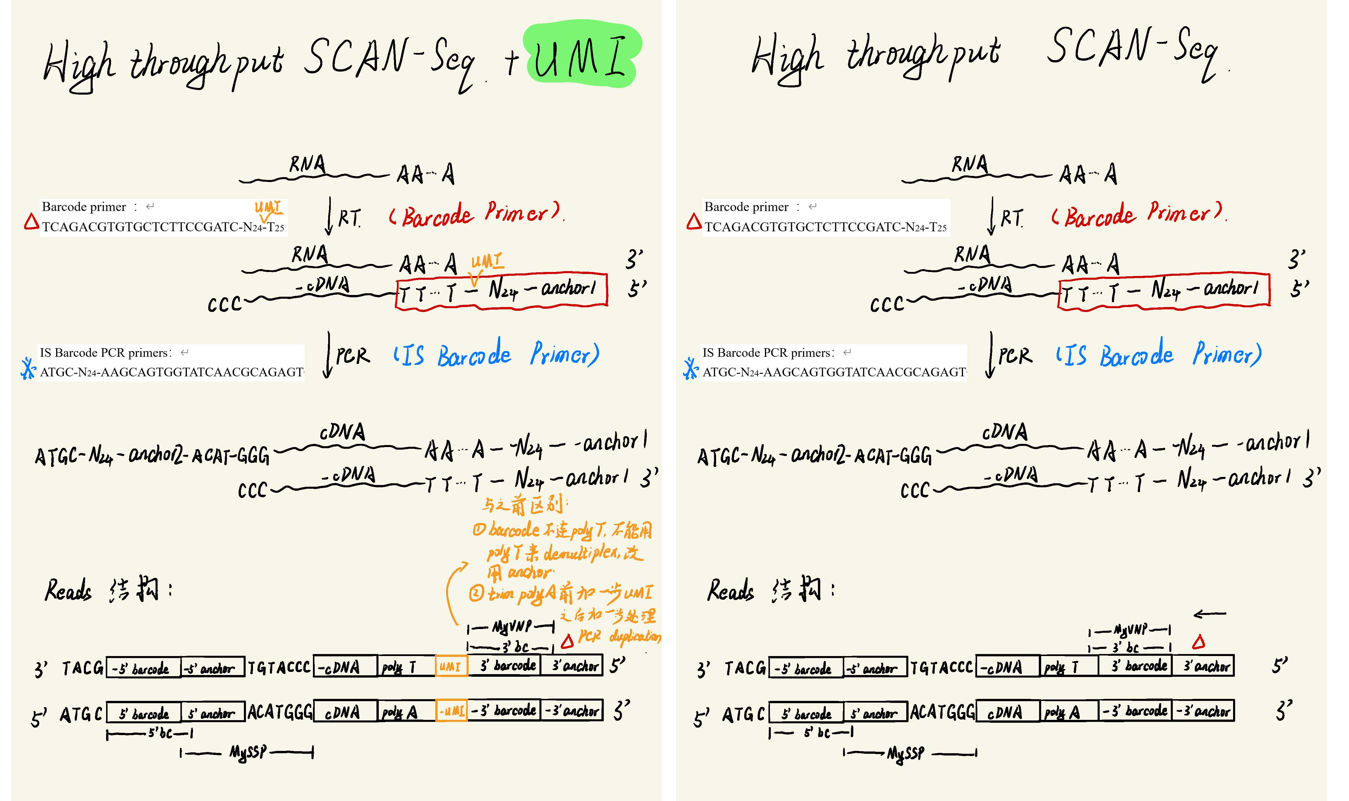 High throughput SCAN-Seq. + UMI
RNA AA...A
Barcode primer : ↵
UMI
TCAGACGTGTGCTCTTCCGATC-N24-T25
RT. (Barcode Primer).
RNA AA...A UMI 3'
CCC -cDNA TT...T - N24 - anchor1 5'
IS Barcode PCR primers: ↵
ATGC-N24-AAGCAGTGGTATCAACGCAGAGT
PCR (IS Barcode Primer)
ATGC-N24-anchor2-ACAT-GGG cDNA AA...A - -N24 - -anchor1
CCC -cDNA TT...T - N24 - anchor1 3'
与之前区别:
① barcode不连polyT,不能用
polyT来demultiplex,改
用anchor.
② trim polyA前加一步UMI
之后加一步处理
PCR duplication
Reads 结构:
MyVNP
3'bc
3' TACG -5' barcode -5' anchor TGTACCC -cDNA poly T UMI 3' barcode 3' anchor 5'
5' ATGC 5' barcode 5' anchor ACATGGG cDNA poly A -UMI -3' barcode -3' anchor 3'
5'bc
MySSP
High throughput SCAN-Seq.
RNA AA...A
Barcode primer : ↵
TCAGACGTGTGCTCTTCCGATC-N24-T25
RT. (Barcode Primer).
RNA AA...A 3'
CCC -cDNA TT...T - N24 - anchor1 5'
IS Barcode PCR primers: ↵
ATGC-N24-AAGCAGTGGTATCAACGCAGAGT
PCR (IS Barcode Primer)
ATGC-N24-anchor2-ACAT-GGG cDNA AA...A - -N24 - -anchor1
CCC -cDNA TT...T - N24 - anchor1 3'
Reads 结构:
MyVNP
3'bc
3' TACG -5' barcode -5' anchor TGTACCC -cDNA poly T 3' barcode 3' anchor 5'
5' ATGC 5' barcode 5' anchor ACATGGG cDNA poly A -3' barcode -3' anchor 3'
5'bc
MySSP